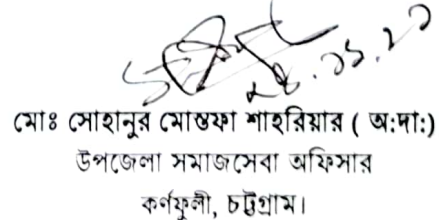 মোঃ সোহানুর মোস্তফা শাহরিয়ার ( অ:দা:)
উপজেলা সমাজসেবা অফিসার
কর্ণফুলী, চট্টগ্রাম।